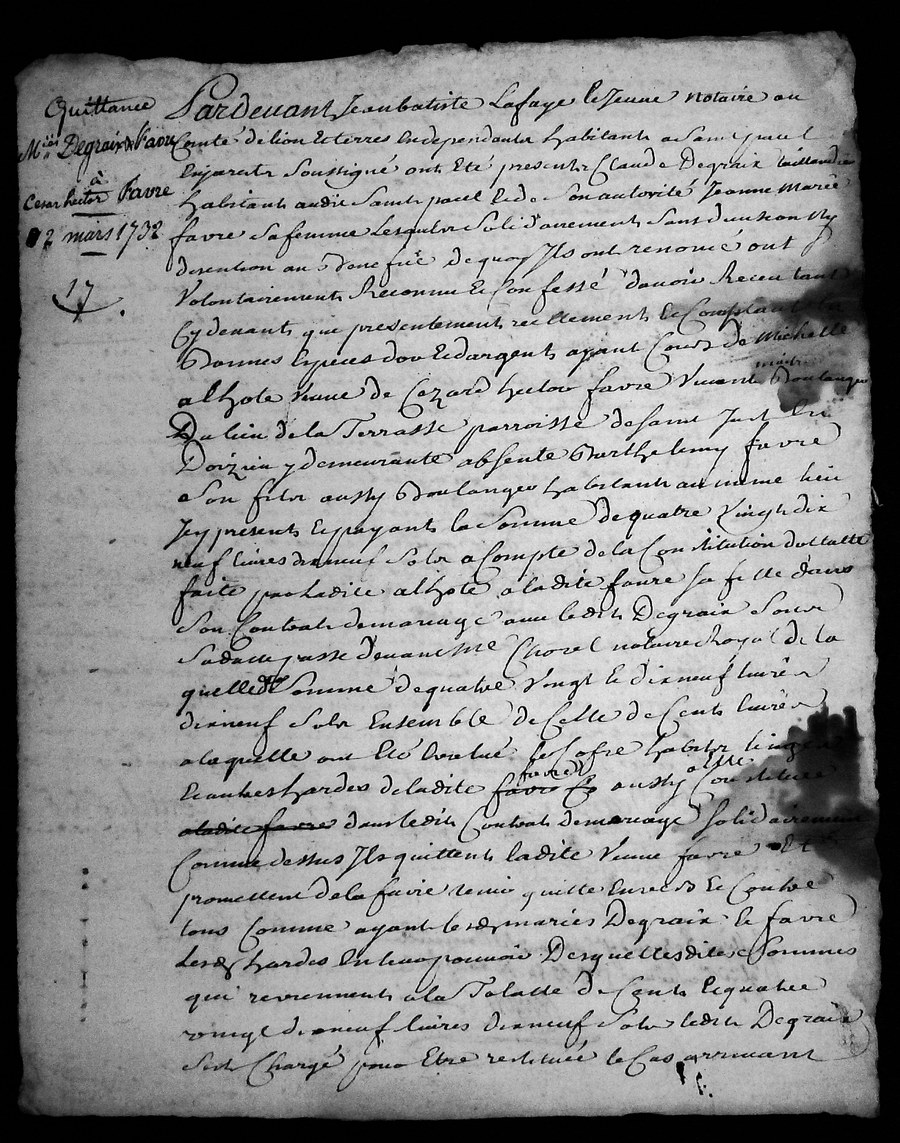 Quittance
Mariés Degraix & Favre
à
Cesar hector Favre
2 mars 1732
17
Pardevant Jean batiste Lafaye le Jeune notaire au
Comté de lion et terres Independants habitant a Saint paul
En jarest Soussigné ont Eté presents Claude Degraix taillandier
habitant audit Saint paul Et de Son autorité Jeanne Marie
favre Sa femme Lesquels Solidairement Sans division Ny
discution au Benefice de quoy Ils ont renoncé ont
Volontairement Reconnu et Confessé d'avoir Receu tant
Cy devant que presentement reellement Et Comptant En
Bonnes Especes d'or Et d'argent ayant Cours de Michelle
alhote Veuve de Cezard hector favre Vivant maitre Boulanger
Du lieu de la Terrasse parroisse de Saint Just En
Doizieu y demeurante absente Barthelemy favre
Son fils aussy Boulanger habitant au meme lieu
Icy present Et payant la Somme de quatre Vingt dix
neuf livres dix neuf Sols a Compte de la Constitution dottalle
faite par ladite alhote a ladite favre Sa fille dans
Son Contrat de mariage avec ledit Degraix Sous
Sa datte passé devant Me Chorel notaire Royal de la
quelle Somme de quatre Vingt Et dix neuf livres
dix neuf Sols Ensemble de Celle de Cents livres
a laquelle ont Eté Evalué le Cofre habits linges
Et autres hardes de ladite favre a Elle aussy Constituée
a ladite favre dans ledit Contrat de mariage Solidairement
Comme dessus Ils quittent ladite Veuve favre Et
promettent de la faire tenir quitte Envers Et Contre
tous Comme ayant lesd mariés Degraix Et favre
Lesd hardes En leur pouvoir Desquelles dites Sommes
qui reviennent a la Totalle de Cents Et quatre
vingt dix neuf livres dix neuf Sols ledit Degraix
S'est Chargé pour Etre restituée le Cas arrivant